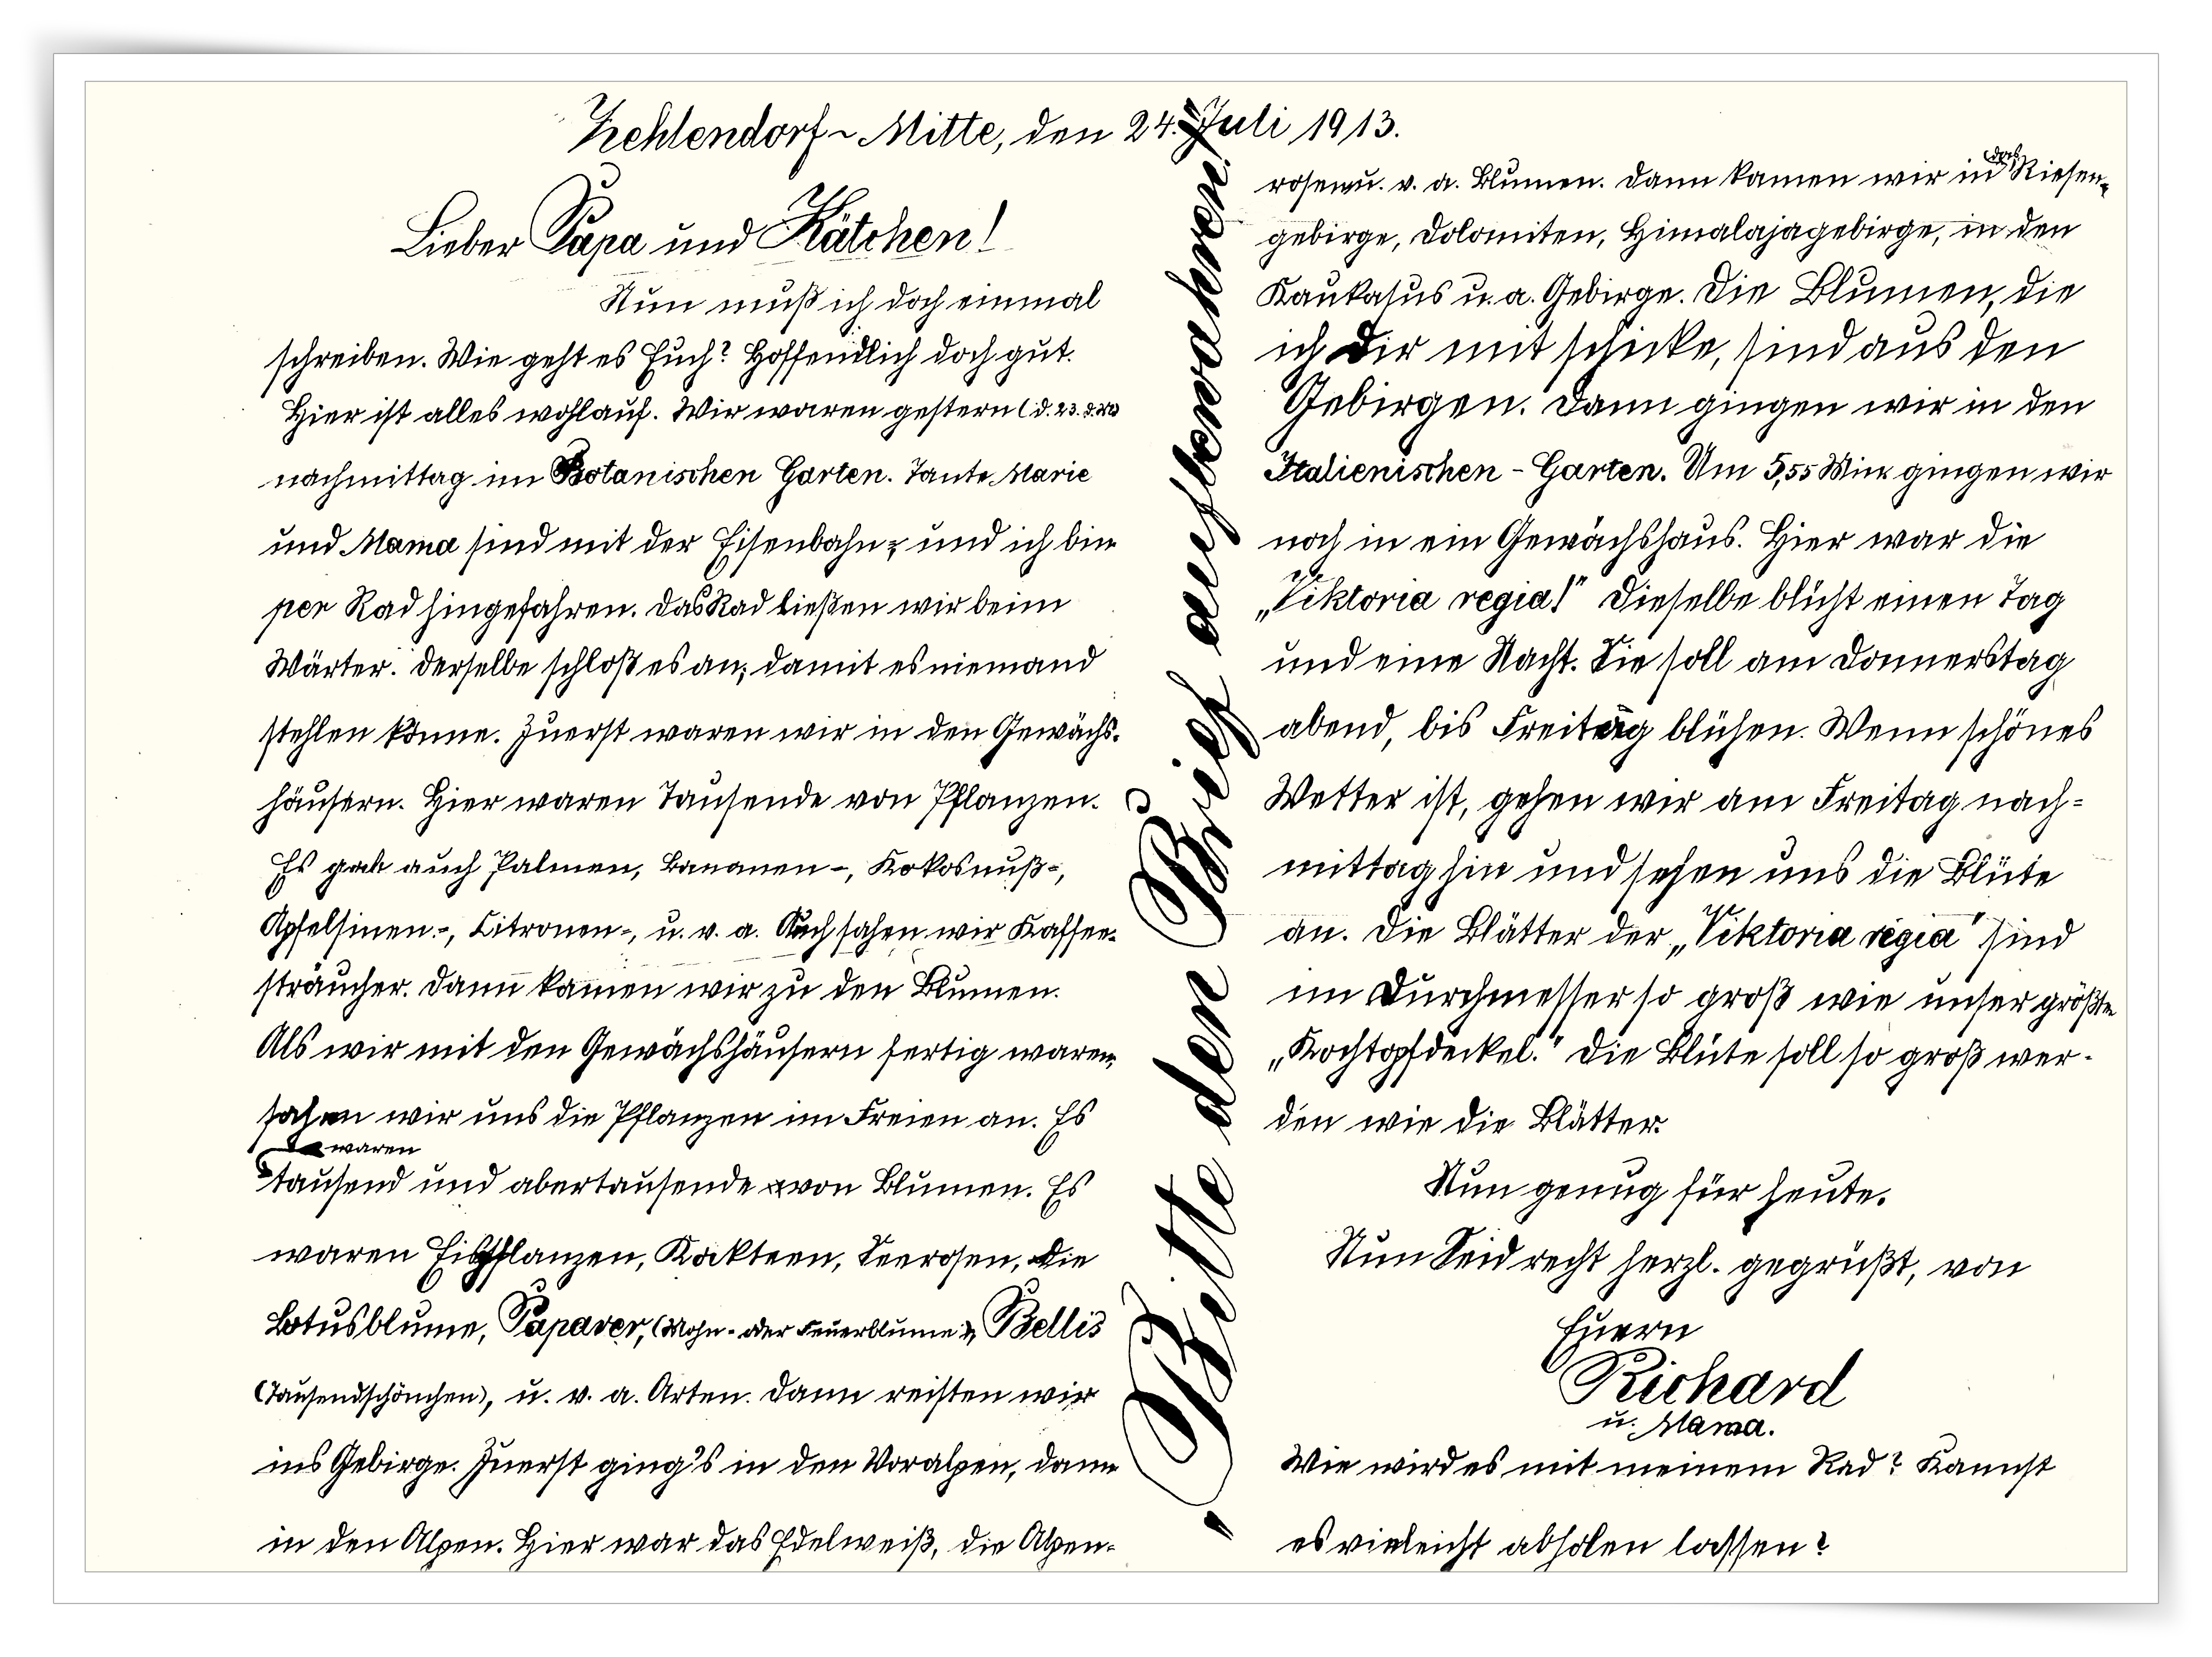 Zehlendorf-Mitte, den 24. Juli 1913.
Lieber Papa und Kätchen!
Nun muß ich doch einmal
schreiben. Wie geht es Euch? Hoffendlich doch gut.
Hier ist alles wohlauf. Wir waren gestern (d. 23.
nachmittag im Botanischen Garten. Tante Marie
und Mama sind mit der Eisenbahn, und ich bin
per Rad hingefahren. Das Rad ließen wir beim
Wärter. Derselbe schloß es an, damit es niemand
stehlen könne. Zuerst waren wir in den Gewächs-
häusern. Hier waren Tausende von Pflanzen.
Es gab auch Palmen, Bananen-, Kokosnuß-,
Apfelsinen-, Citronen-, u. v. a. Auch sahen wir Kaffee-
sträucher. Dann kamen wir zu den Blumen.
Als wir mit den Gewächshäusern fertig waren,
sahen wir uns die Pflanzen im Freien an. Es
waren
tausend und abertausende von Blumen. Es
waren Eispflanzen, Kakteen, Seerosen, die
Lotusblume, Papaver, (Mohn- oder Feuerblume), Bellis
(Tausendschönchen), u. v. a. Arten. Dann reisten wir
ins Gebirge. Zuerst ging's in den Voralpen, dann
in den Alpen. Hier war das Edelweiß, die Alpen-
Bitte den Brief aufbewahren!
rosen u. v. a. Blumen. Dann kamen wir in das Riesen-
gebirge, Dolomiten, Himalajagebirge, in den
Kaukasus u. a. Gebirge. Die Blumen, die
ich Dir mit schicke, sind aus den
Gebirgen. Dann gingen wir in den
Italienischen-Garten. Um 5,55 Min gingen wir
noch in ein Gewächshaus. Hier war die
„Viktoria regia!" Dieselbe blüht einen Tag
und eine Nacht. Sie soll am Donnerstag
abend, bis Freitag blühen. Wenn schönes
Wetter ist, gehen wir am Freitag nach-
mittag hin und sehen uns die Blüte
an. Die Blätter der „Viktoria regia" sind
im Durchmesser so groß wie unser größte
„Kochtopfdeckel." Die Blüte soll so groß wer-
den wie die Blätter.
Nun genug für heute.
Nun Seid recht herzl. gegrüßt, von
Euern
Richard
u. Mama.
Wie wird es mit meinem Rad? Kannst
es vieleicht abholen lassen?